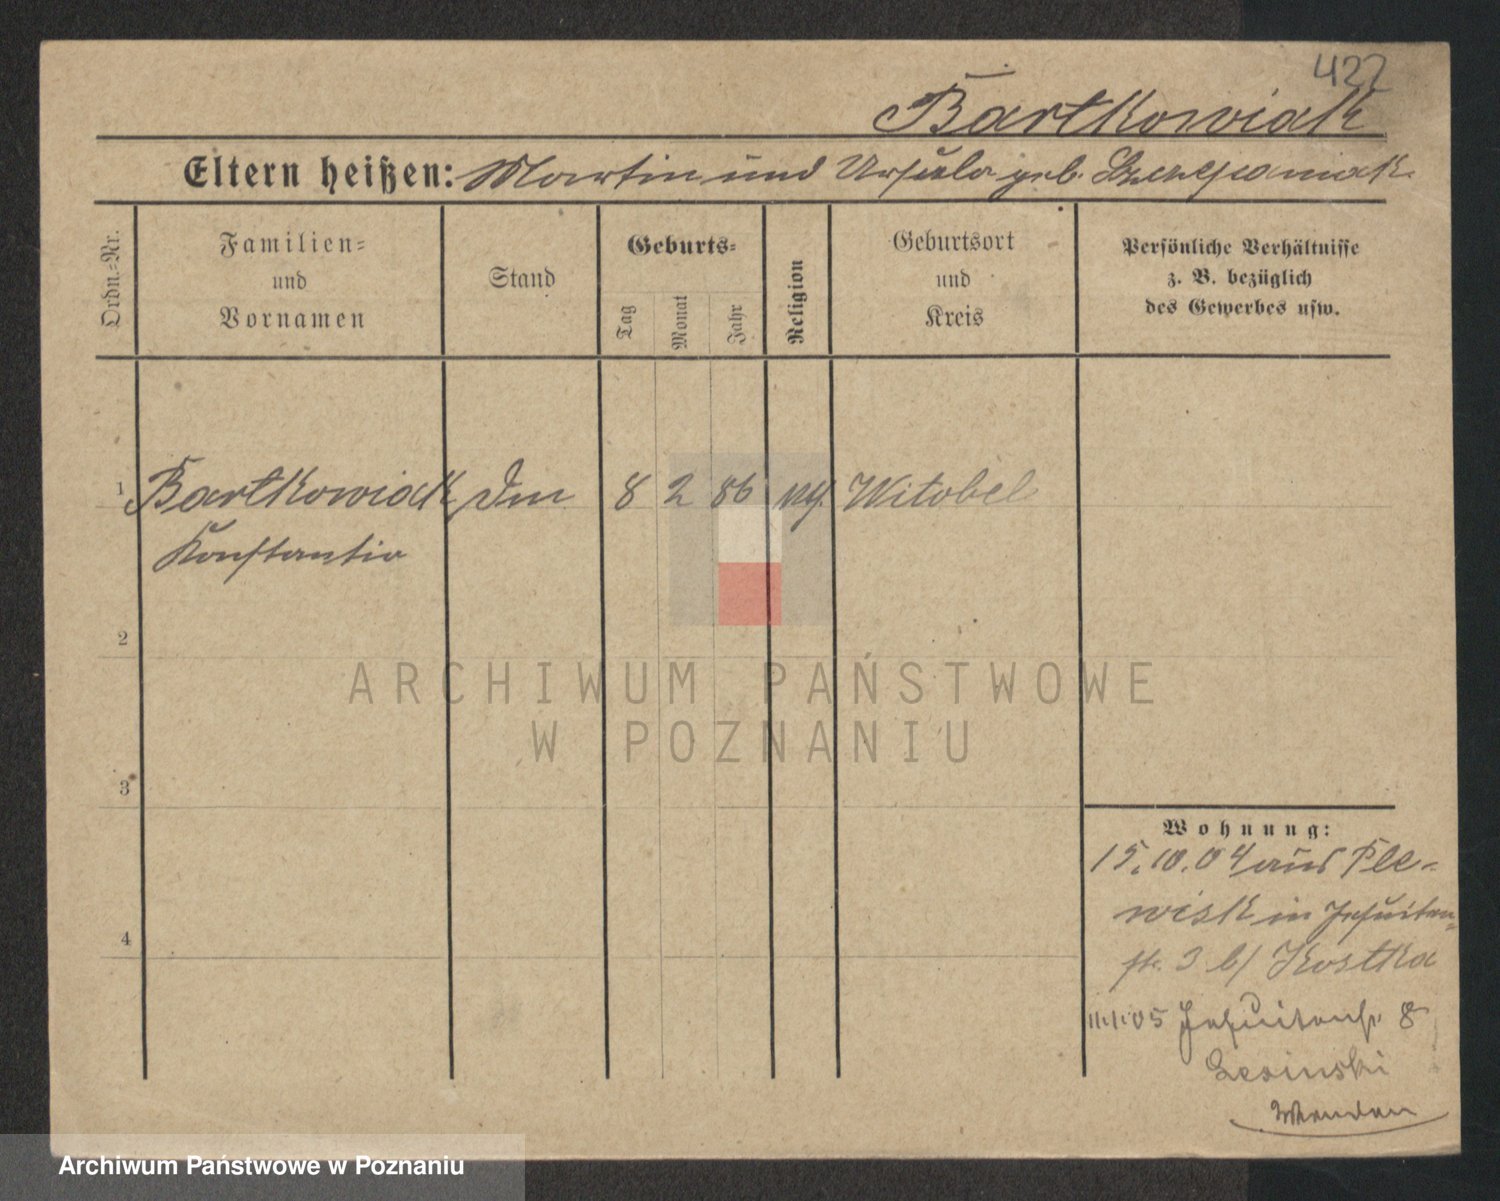 422
Bartkowiak
Eltern heißen: Martin und Ursula geb. Szczepaniak
Ordn.=Nr.
Familien=
und
Vornamen
Stand
Geburts=
Tag
Monat
Jahr
Religion
Geburtsort
und
Kreis
Persönliche Verhältnisse
z. B. bezüglich
des Gewerbes usw.
1 Bartkowiak 8 2 86 Witobel
Konstantia
2
ARCHIWUM PAŃSTWOWE
W POZNANIU
3
Wohnung:
15.10.04 aus Ple=
wisk in Jesuiten=
str. 3 b/ Kostka
11.1.05 Jesuitenstr. 8
Lesinski
Wenden
4
Archiwum Państwowe w Poznaniu